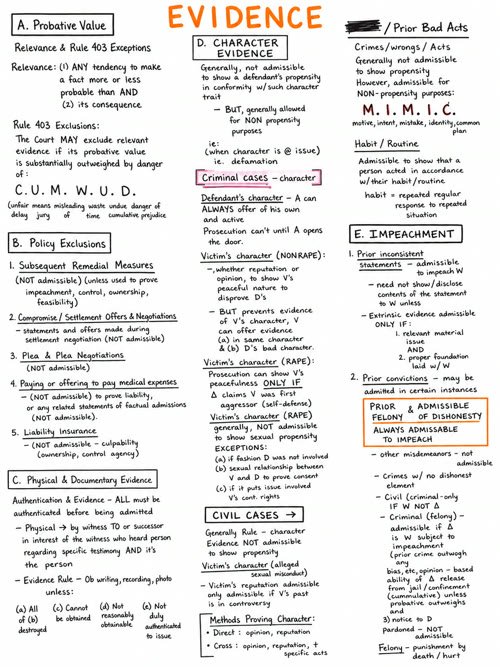 EVIDENCE
A. Probative Value
Relevance & Rule 403 Exceptions
Relevance: (1) ANY tendency to make
a fact more or less
probable than AND
(2) its consequence
Rule 403 Exclusions:
The Court MAY exclude relevant
evidence if its probative value
is substantially outweighed by danger
of:
C. U. M. W. U. D.
(unfair means misleading waste undue danger of
delay jury of time cumulative prejudice
B. Policy Exclusions
1. Subsequent Remedial Measures
(NOT admissible) (unless used to prove
impeachment, control, ownership,
feasibility)
2. Compromise / Settlement Offers & Negotiations
– statements and offers made during
settlement negotiation (NOT admissible)
3. Plea & Plea Negotiations
(NOT admissible)
4. Paying or offering to pay medical expenses
– (NOT admissible) to prove liability,
or any related statements of factual admissions
(NOT admissible).
5. Liability Insurance
– (NOT admissible - culpability
(ownership, control agency)
C. Physical & Documentary Evidence
Authentication & Evidence - ALL must be
authenticated before being admitted
– Physical → by witness TO or successor
in interest of the witness who heard person
regarding specific testimony AND it's
the person
– Evidence Rule - Ob writing, recording, photo
unless:
(a) All
of (b)
destroyed
(c) Cannot
be obtained
(d) Not
reasonably
obtainable
(e) Not
duly
authenticated
to issue
D. CHARACTER
EVIDENCE
Generally, not admissible
to show a defendant's propensity
in conformity w/such character
trait
– BUT, generally allowed
for NON propensity
purposes
ie:
(when character is @ issue)
ie. defamation
Criminal cases – character
Defendant's character – Δ can
ALWAYS offer of his own
and active
Prosecution can't until Δ opens
the door.
Victim's character (NONRAPE):
–, whether reputation or
opinion, to show V's
peaceful nature to
disprove D's
– BUT prevents evidence
of V's character, V
can offer evidence
(a) in same character
& (b) D's bad character.
Victim's character (RAPE):
Prosecution can show V's
peacefulness ONLY IF
Δ claims V was first
aggressor (self-defense)
Victim's character (RAPE)
generally, NOT admissible
to show sexual propensity
EXCEPTIONS:
(a) if fashion D was not involved
(b) sexual relationship between
V and D to prove consent
(c) if it puts issue involved
V's cont. rights
CIVIL CASES →
Generally Rule - character
Evidence NOT admissible
to show propensity
Victim's character (alleged
sexual misconduct)
– Victim's reputation admissible
only admissible if V's past
is in controversy
Methods Proving Character:
• Direct : opinion, reputation
• Cross : opinion, reputation, +
specific acts
/ Prior Bad Acts
Crimes/wrongs / Acts
Generally not admissible
to show propensity
However, admissible for
NON-propensity purposes:
M. I. M. I. C.
motive, intent, mistake, identity, common
plan
Habit / Routine
Admissible to show that a
person acted in accordance
w/their habit/routine
habit = repeated regular
response to repeated
situation
E. IMPEACHMENT
1. Prior inconsistent
statements – admissible
to impeach W
– need not show/disclose
contents of the statement
to W unless
– Extrinsic evidence admissible
ONLY IF:
1. relevant material
issue
AND
2. proper foundation
laid w/ W
2. Prior convictions – may be
admitted in certain instances
PRIOR
FELONY & ADMISSIBLE
OF DISHONESTY
ALWAYS ADMISSABLE
TO IMPEACH
– other misdemeanors - not
admissible
– Crimes w/ no dishonest
element
– Civil (criminal-only
IF W NOT Δ
– Criminal (felony) -
admissible if Δ
is W subject to
impeachment
(prior crime outwogh
any
bias, etc, opinion - based
ability of Δ release
from jail/confinement
(cummulative) unless
probative outweighs
and
3) notice to D
Pardoned – NOT
admissible
Felony – punishment by
death / hurt